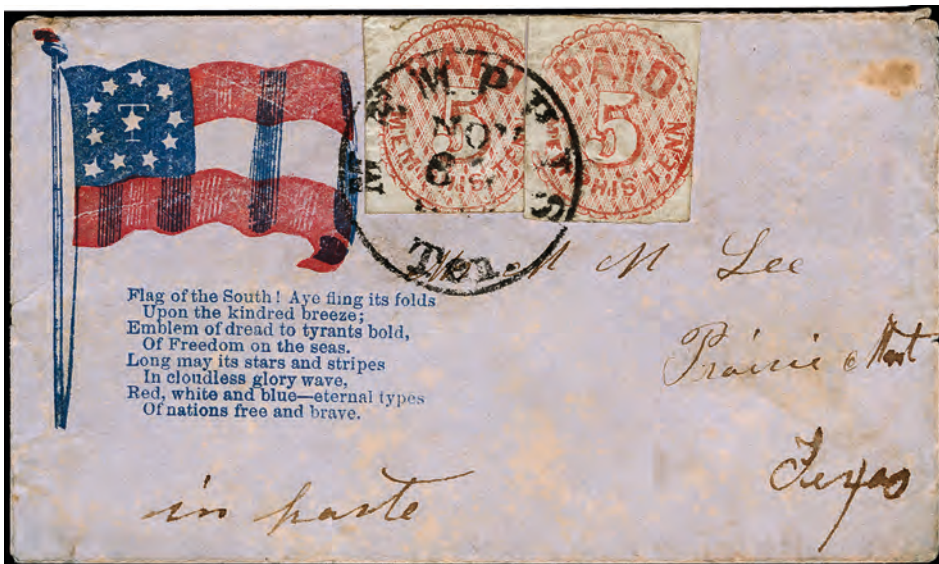 T
PAID
5
MEMPHIS TENN
PAID
5
MEMPHIS TENN
MEMPHIS
NOV
Ten.
Flag of the South! Aye fling its folds
Upon the kindred breeze;
Emblem of dread to tyrants bold,
Of Freedom on the seas.
Long may its stars and stripes
In cloudless glory wave,
Red, white and blue—eternal types
Of nations free and brave.
M M Lee
Prairie
Texas
in haste